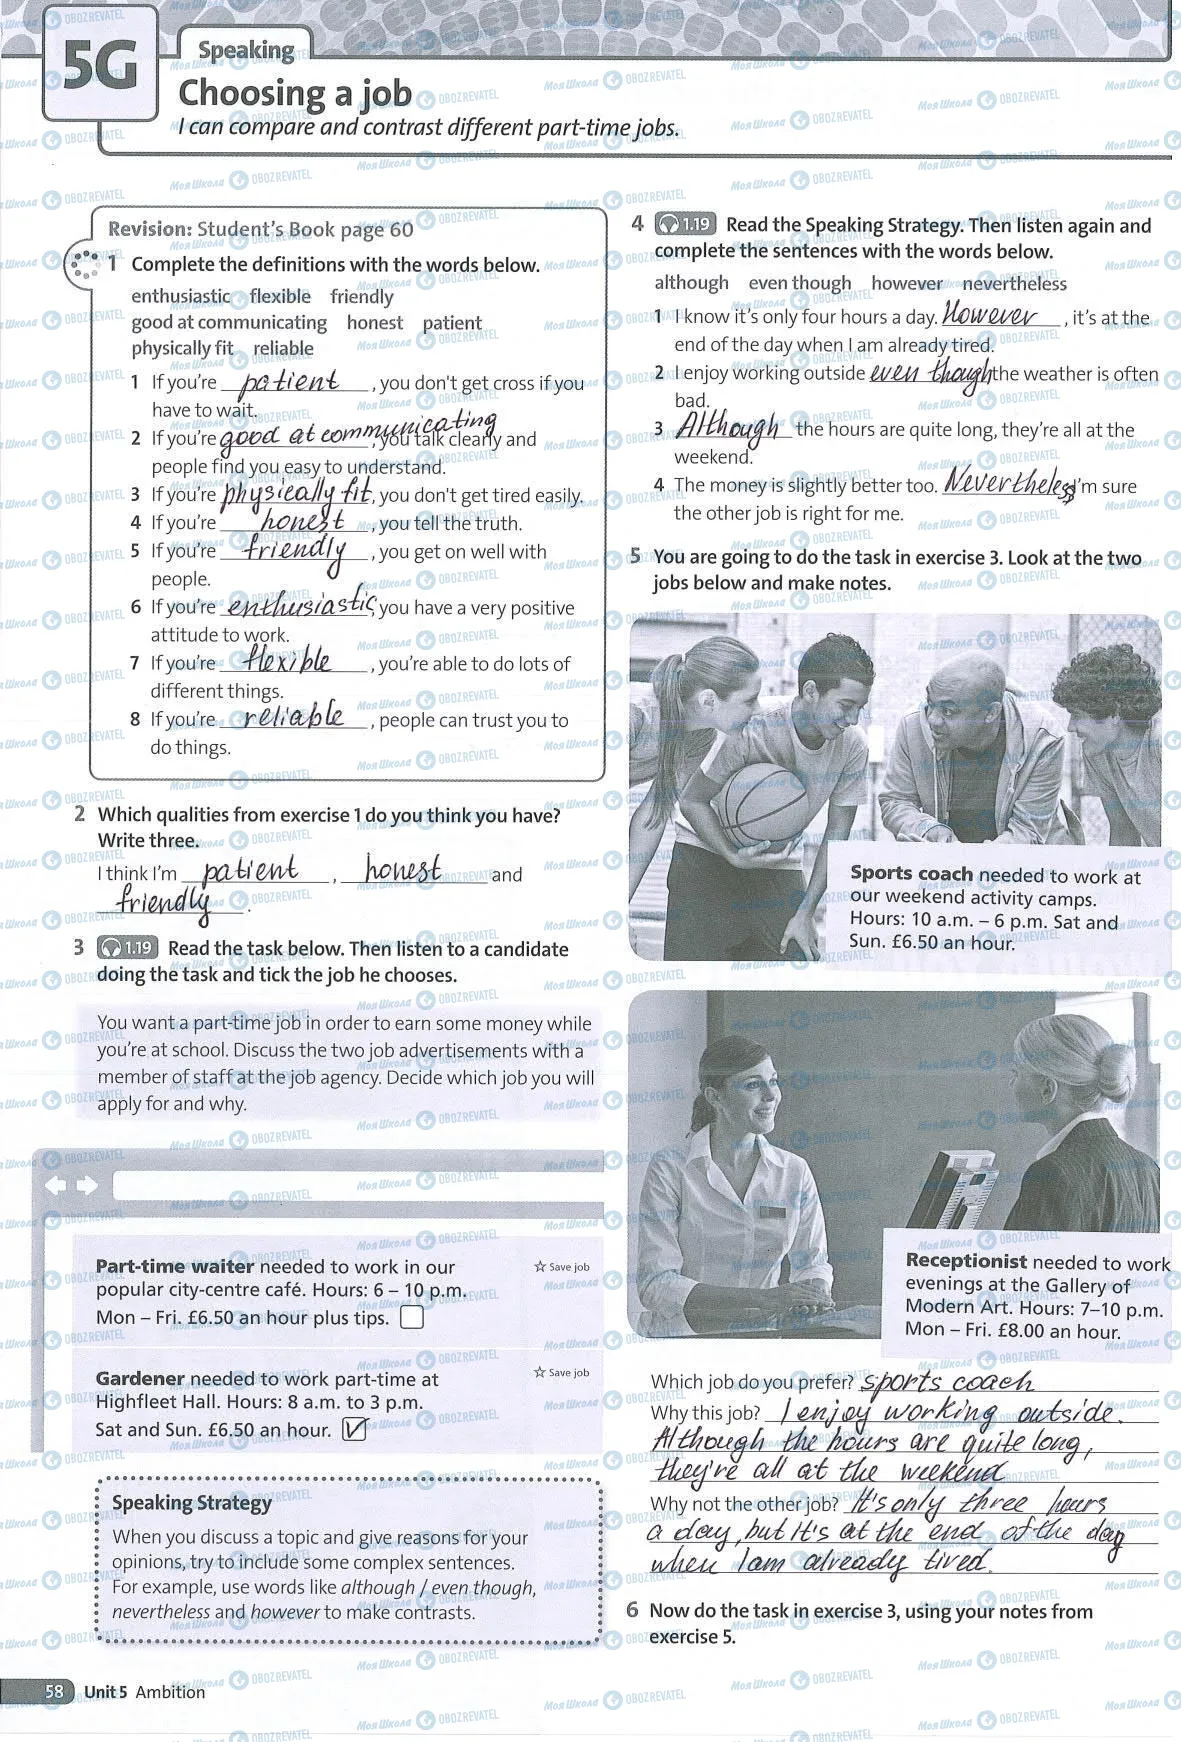 5G
Speaking
Choosing a job
I can compare and contrast different part-time jobs.
Revision: Student's Book page 60
1 Complete the definitions with the words below.
enthusiastic flexible friendly
good at communicating honest patient
physically fit reliable
1 If you're patient, you don't get cross if you
have to wait.
2 If you're good at communicating, you talk clearly and
people find you easy to understand.
3 If you're physically fit, you don't get tired easily.
4 If you're honest, you tell the truth.
5 If you're friendly, you get on well with
people.
6 If you're enthusiastic, you have a very positive
attitude to work.
7 If you're flexible, you're able to do lots of
different things.
8 If you're reliable, people can trust you to
do things.
2 Which qualities from exercise 1 do you think you have?
Write three.
I think I'm patient, honest and
friendly.
3 1.19 Read the task below. Then listen to a candidate
doing the task and tick the job he chooses.
You want a part-time job in order to earn some money while
you're at school. Discuss the two job advertisements with a
member of staff at the job agency. Decide which job you will
apply for and why.
Part-time waiter needed to work in our
popular city-centre café. Hours: 6 – 10 p.m.
Mon – Fri. £6.50 an hour plus tips.
☆ Save job
Gardener needed to work part-time at
Highfleet Hall. Hours: 8 a.m. to 3 p.m.
Sat and Sun. £6.50 an hour. ✓
☆ Save job
Speaking Strategy
When you discuss a topic and give reasons for your
opinions, try to include some complex sentences.
For example, use words like although / even though,
nevertheless and however to make contrasts.
4 1.19 Read the Speaking Strategy. Then listen again and
complete the sentences with the words below.
although even though however nevertheless
1 I know it's only four hours a day. However, it's at the
end of the day when I am already tired.
2 I enjoy working outside even though the weather is often
bad.
3 Although the hours are quite long, they're all at the
weekend.
4 The money is slightly better too. Nevertheless I'm sure
the other job is right for me.
5 You are going to do the task in exercise 3. Look at the two
jobs below and make notes.
Sports coach needed to work at
our weekend activity camps.
Hours: 10 a.m. – 6 p.m. Sat and
Sun. £6.50 an hour.
Receptionist needed to work
evenings at the Gallery of
Modern Art. Hours: 7–10 p.m.
Mon – Fri. £8.00 an hour.
Which job do you prefer? sports coach
Why this job? I enjoy working outside.
Although the hours are quite long,
they're all at the weekend
Why not the other job? It's only three hours
a day, but it's at the end of the day
when I am already tired.
6 Now do the task in exercise 3, using your notes from
exercise 5.
58 Unit 5 Ambition
Моя Школа OBOZREVATEL